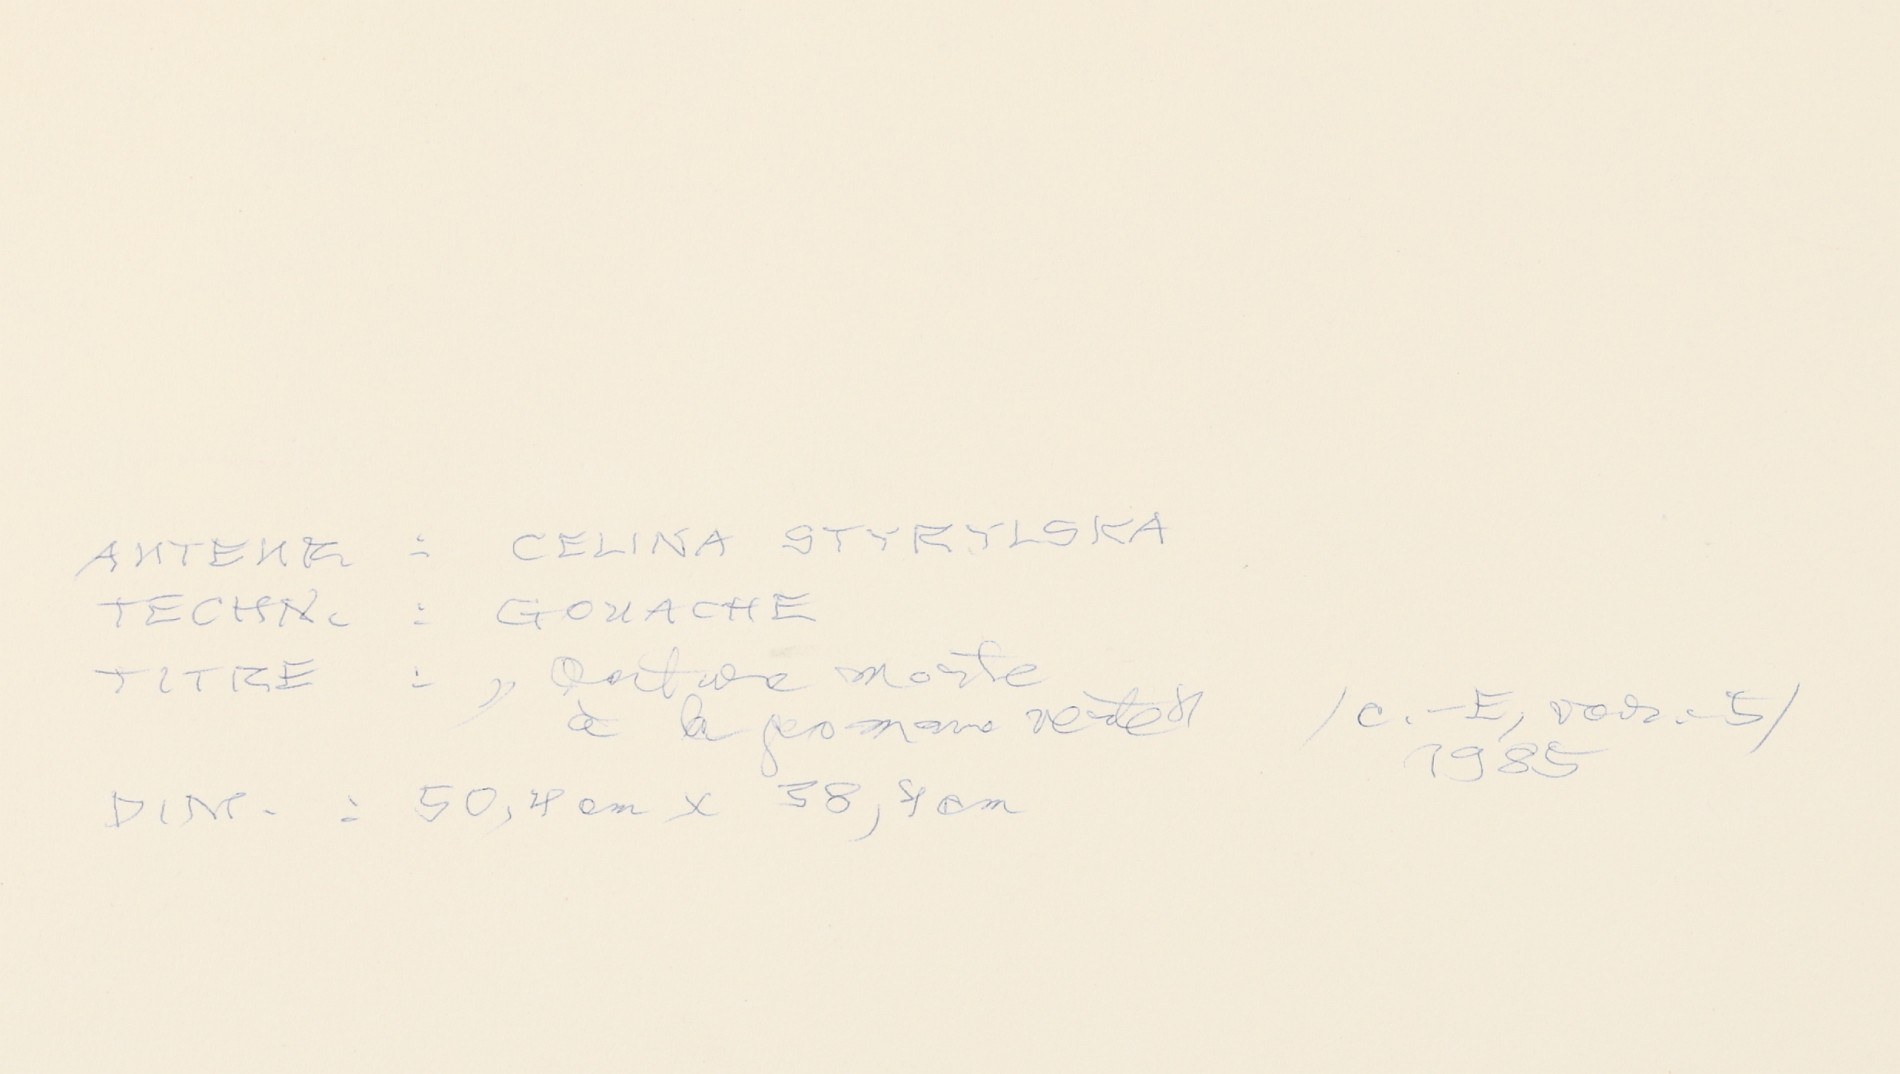 AUTEUR : CELINA STYRYLSKA
TECHN. : GOUACHE
TITRE : „Nature morte
à la pomme verte"
/c.-E, var.-5/
1985
DIM. : 50,4 cm x 38,4 cm